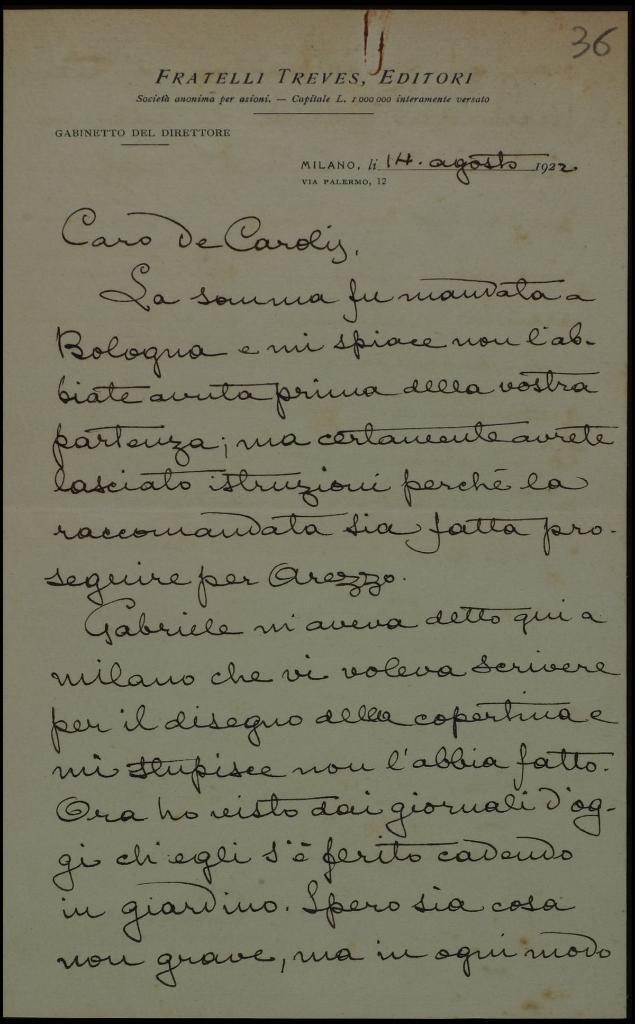 36
FRATELLI TREVES, EDITORI
Società anonima per azioni. — Capitale L. 1 000 000 interamente versato
GABINETTO DEL DIRETTORE
MILANO, li 14. agosto 1922
VIA PALERMO, 12
Caro De Carolis,
La somma fu mandata a
Bologna e mi spiace non l'ab-
biate avuta prima della vostra
partenza; ma certamente avrete
lasciato istruzioni perché la
raccomandata sia fatta pro-
seguire per Arezzo.
Gabriele m'aveva detto qui a
Milano che vi voleva scrivere
per il disegno della copertina e
mi stupisce non l'abbia fatto.
Ora ho visto dai giornali d'og-
gi ch'egli s'è ferito cadendo
in giardino. Spero sia cosa
non grave, ma in ogni modo